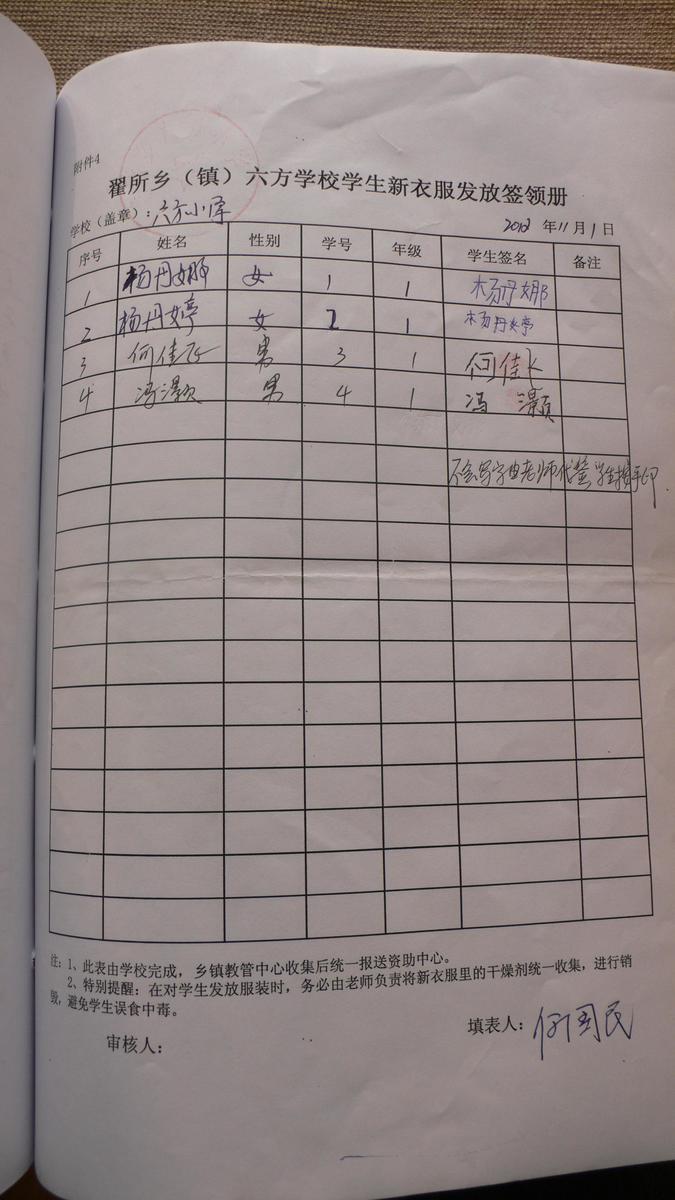 附件4
翟所乡（镇）六方学校学生新衣服发放签领册
学校（盖章）：六方小学 2012 年 11 月 1 日
序号 姓名 性别 学号 年级 学生签名 备注
1 杨丹娜 女 1 1 杨丹娜
2 杨丹婷 女 2 1 杨丹婷
3 何佳飞 男 3 1 何佳飞
4 冯灏 男 4 1 冯灏
不会写字由老师代签 学生按手印
注：1、此表由学校完成，乡镇教管中心收集后统一报送资助中心。
2、特别提醒：在对学生发放服装时，务必由老师负责将新衣服里的干燥剂统一收集，进行销
毁，避免学生误食中毒。
填表人：何国民
审核人：